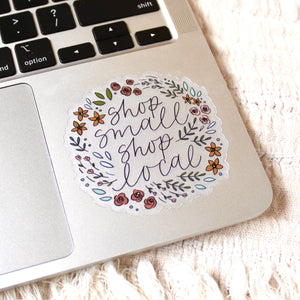 option
shop
small
shop
local